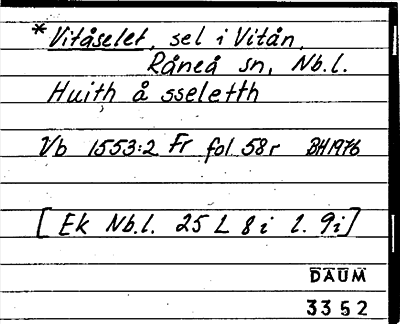 *Vitåselet, sel i Vitån,
Råneå sn, Nb.l.
Huith å sseletth
Vb 1553:2 Fr fol 58r BH1976
[Ek Nb.l. 25 L 8i l. 9i]
DAUM
3352